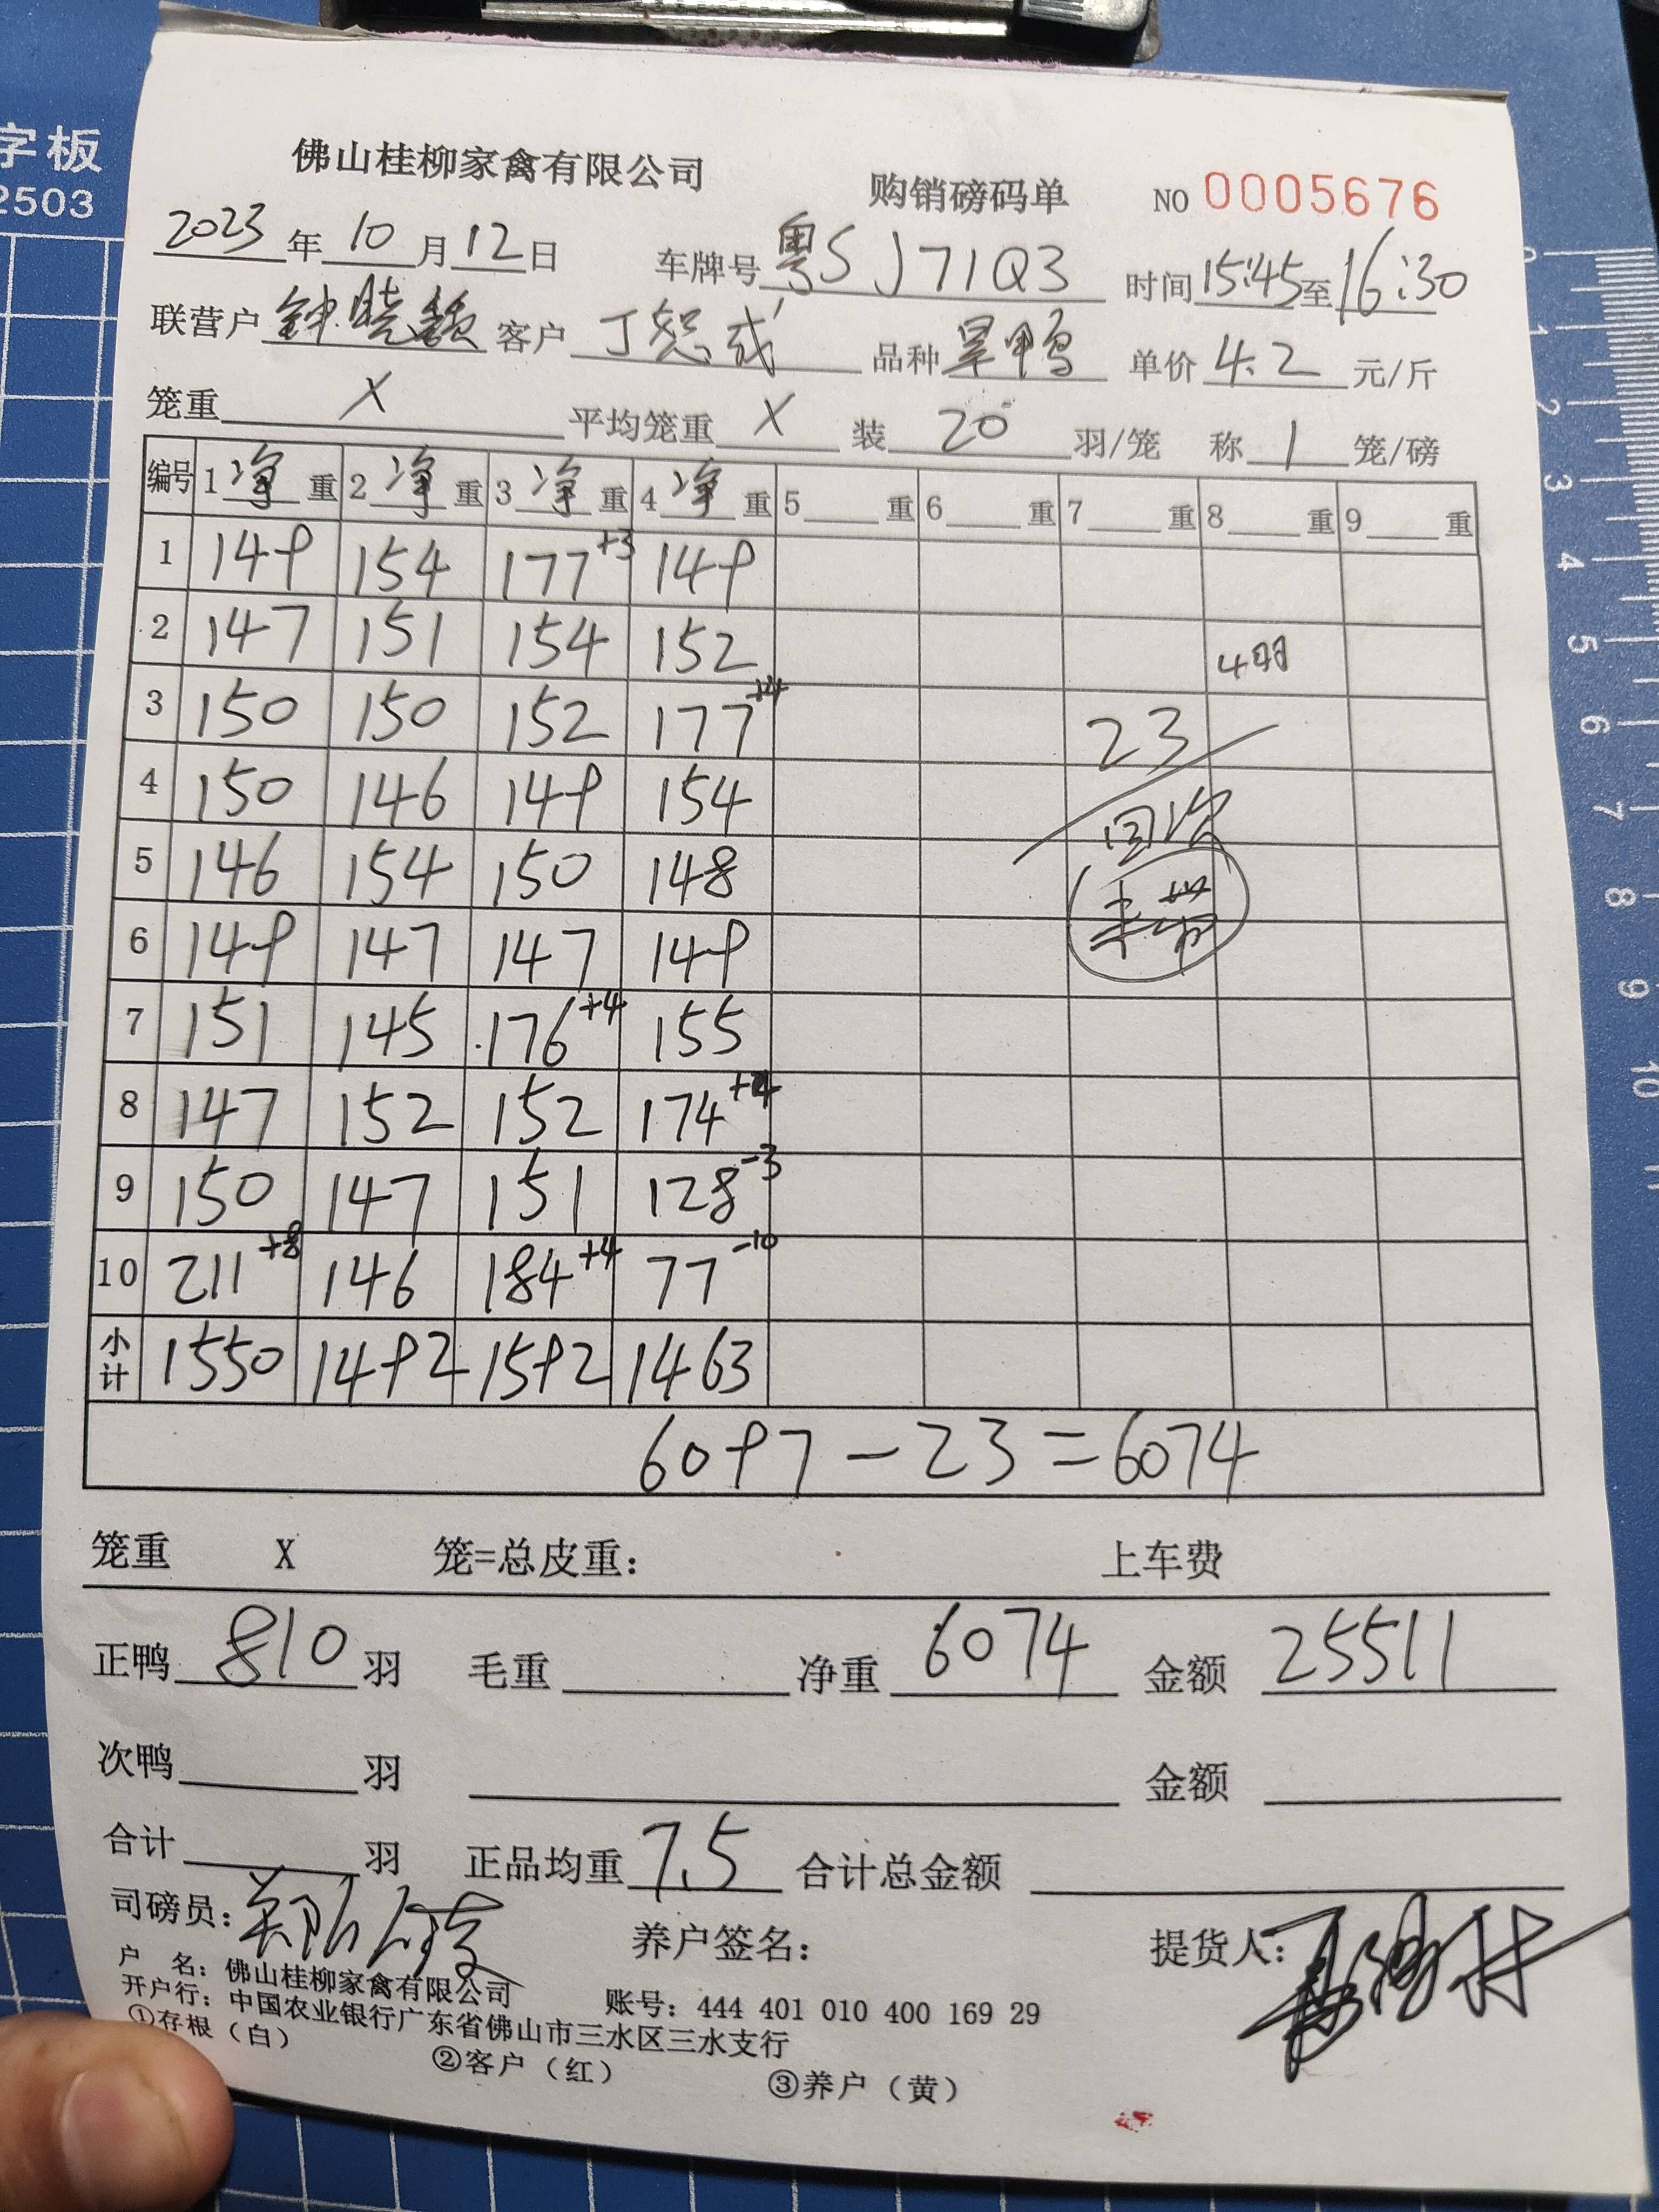 字板
2503
佛山桂柳家禽有限公司 购销磅码单 NO 0005676
2023年10月12日 车牌号 粤SJ71Q3 时间15:45至16:30
联营户 钟晓 客户 丁 成 品种 旱鸭 单价 4.2 元/斤
笼重 X 平均笼重 X 装 20 羽/笼 称 1 笼/磅
编号 1净重 2净重 3净重 4净重 5 重 6 重 7 重 8 重 9 重
1 149 154 177+3 149
2 147 151 154 152 4羽
3 150 150 152 177+4 23
4 150 146 149 154 回次
5 146 154 150 148
6 149 147 147 149
7 151 145 176+4 155
8 147 152 152 174
9 150 147 151 128-3
10 211+8 146 184+4 77-10
小计 1550 1492 1592 1463
6097-23=6074
笼重 X 笼=总皮重: 上车费
正鸭 810 羽 毛重 净重 6074 金额 25511
次鸭 羽 金额
合计 羽 正品均重 7.5 合计总金额
司磅员: 养户签名: 提货人:
户 名: 佛山桂柳家禽有限公司 账号: 444 401 010 400 169 29
开户行: 中国农业银行广东省佛山市三水区三水支行
①存根(白) ②客户(红) ③养户(黄)
0
1
2
3
4
5
6
7
8
9
10
11